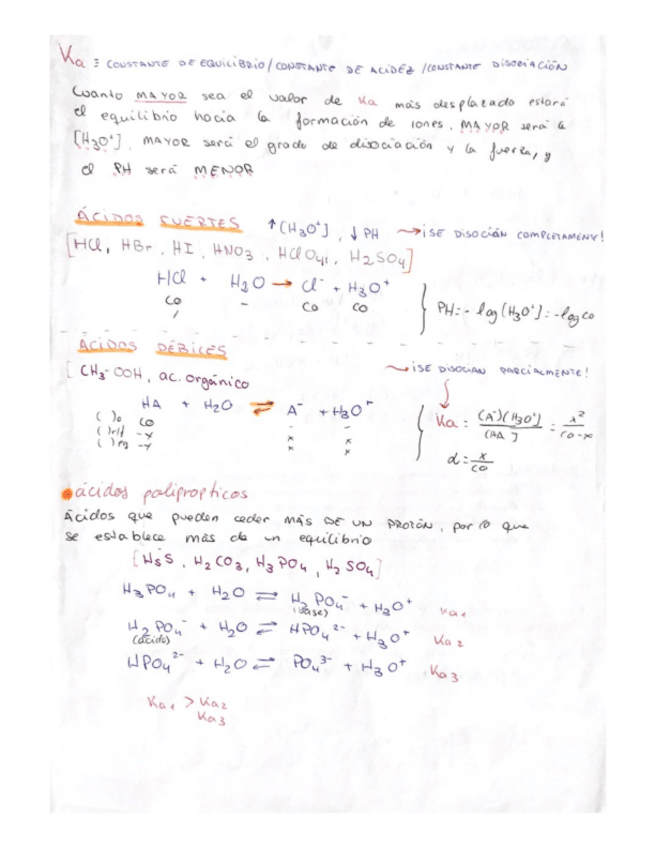 Ka ≡ CONSTANTE DE EQUILIBRIO/CONSTANTE DE ACIDEZ/CONSTANTE DISOCIACIÓN
Cuanto MAYOR sea el valor de Ka más desplazado estará
el equilibrio hacia la formación de iones, MAYOR será la
[H3O+], MAYOR será el grado de disociación y la fuerza, y
el PH será MENOR
ÁCIDOS FUERTES ↑[H3O+], ↓ PH → ¡SE DISOCIAN COMPLETAMENTE!
[HCl, HBr, HI, HNO3, HClO4, H2SO4]
HCl + H2O → Cl- + H3O+
co - co co
PH = - log [H3O+] = -log co
ÁCIDOS DÉBILES
→ ¡SE DISOCIAN PARCIALMENTE!
[CH3-OOH, ac. orgánico
HA + H2O ⇌ A- + H3O+
( )o co - -
( )r/f -x x x
( )eq -x x x
Ka = (A-)(H3O+) / (HA] = x² / co-x
α = x / co
ácidos poliprópticos
Ácidos que pueden ceder MÁS DE UN PROTÓN, por lo que
se establece más de un equilibrio
[HsS, H2CO3, H3PO4, H2SO4]
H3PO4 + H2O ⇌ H2PO4- + H3O+ Ka1
(base)
H2PO4- + H2O ⇌ HPO4 2- + H3O+ Ka2
(ácido)
HPO4 2- + H2O ⇌ PO4 3- + H3O+ Ka3
Ka1 > Ka2
Ka3